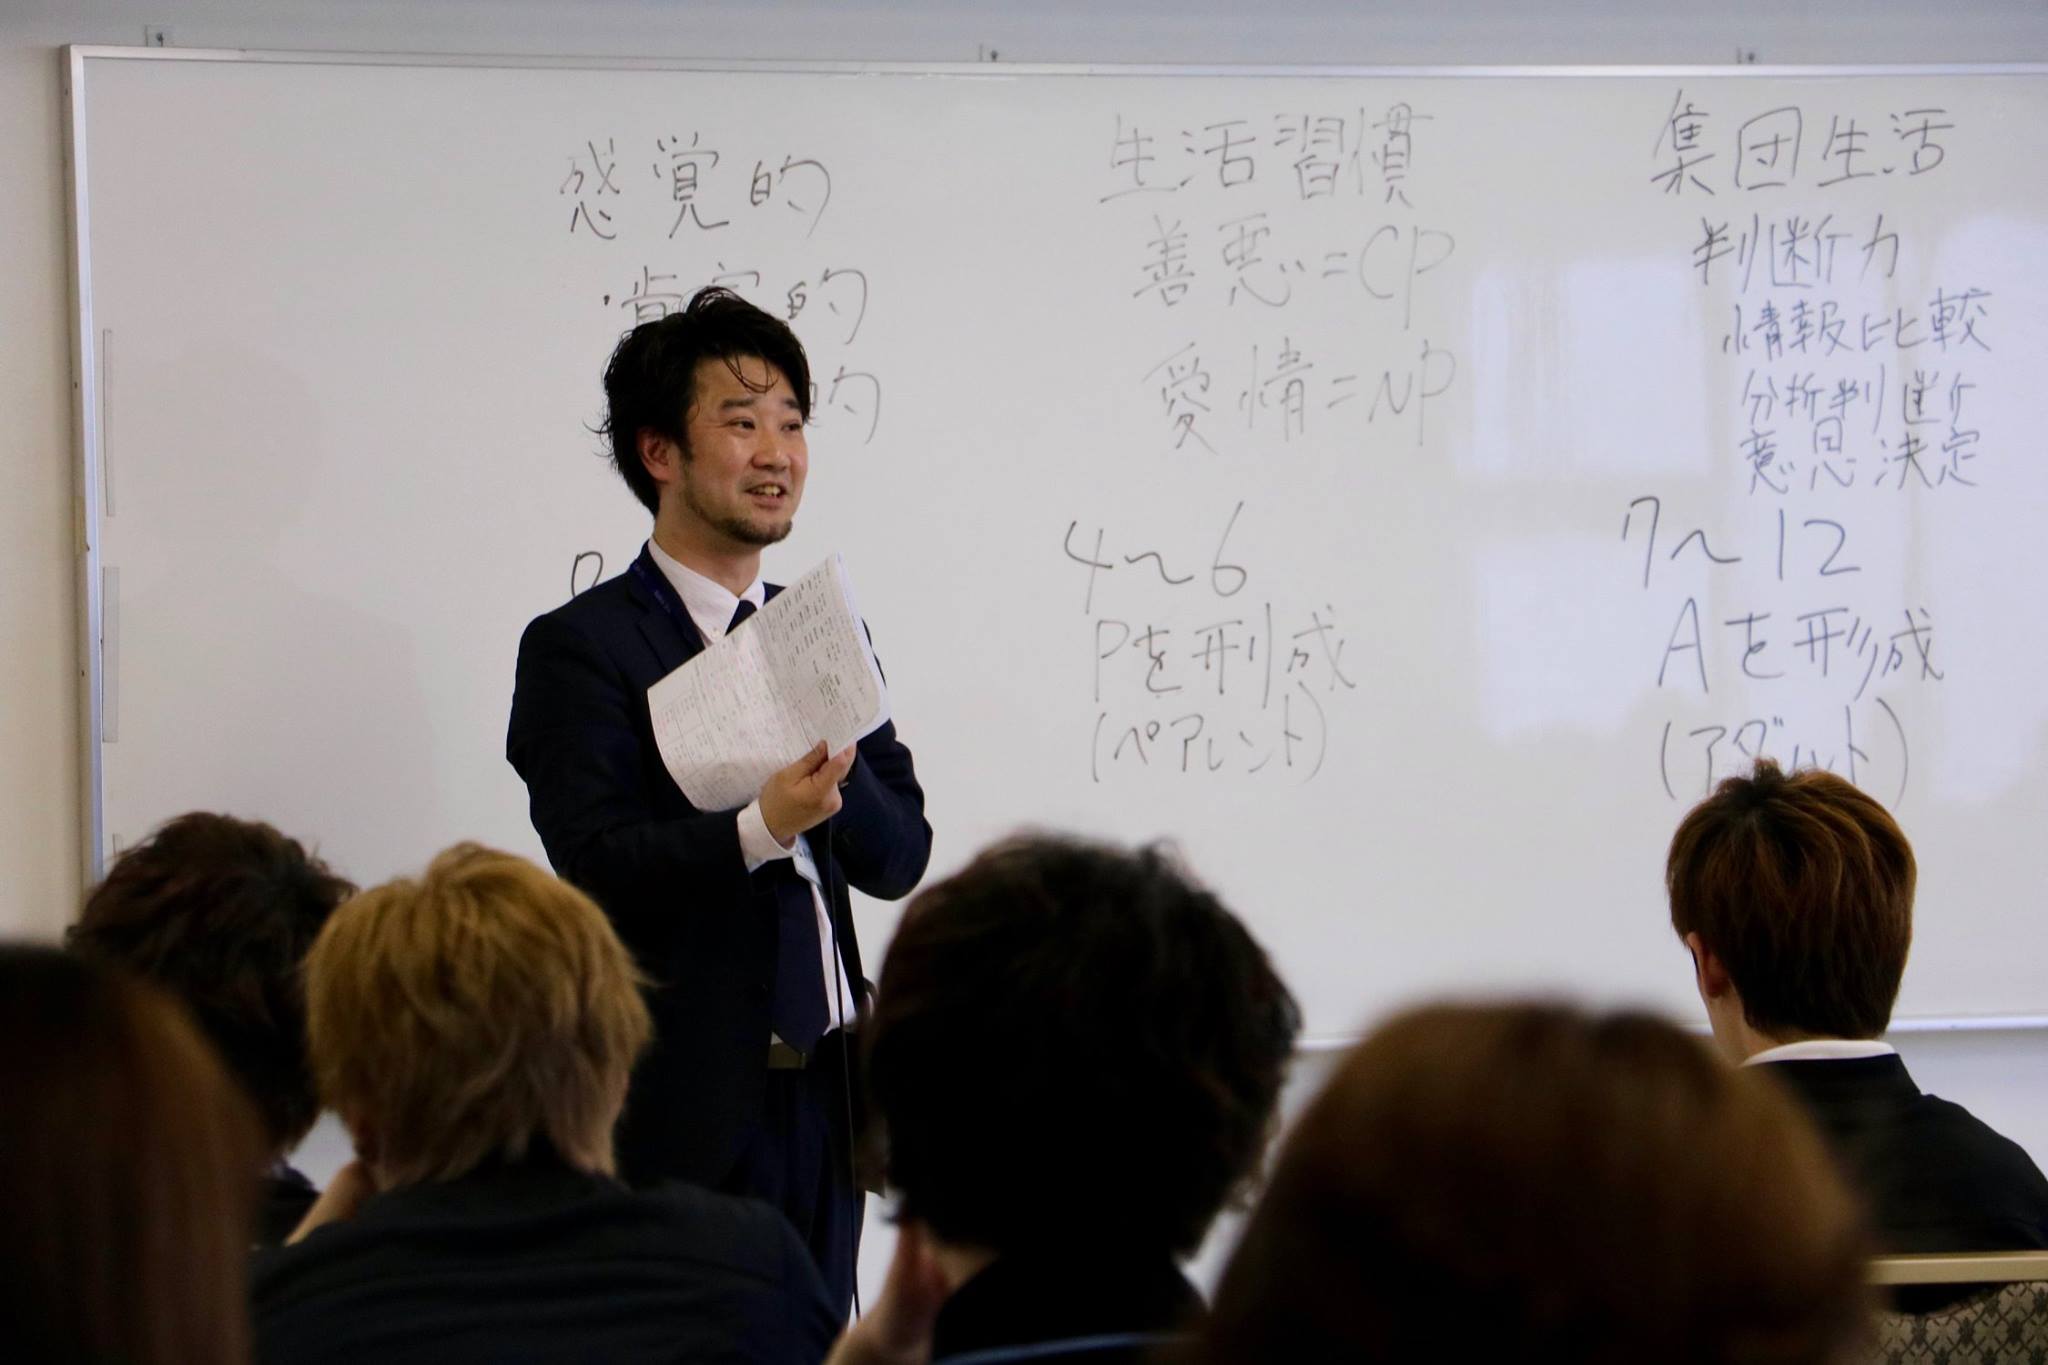 感覚的
・肯定的
的
生活習慣
善悪=CP
愛情=NP
4〜6
Pを形成
(ペアレント)
集団生活
判断力
情報比較
分析判断
意思決定
7〜12
Aを形成
(アダルト)